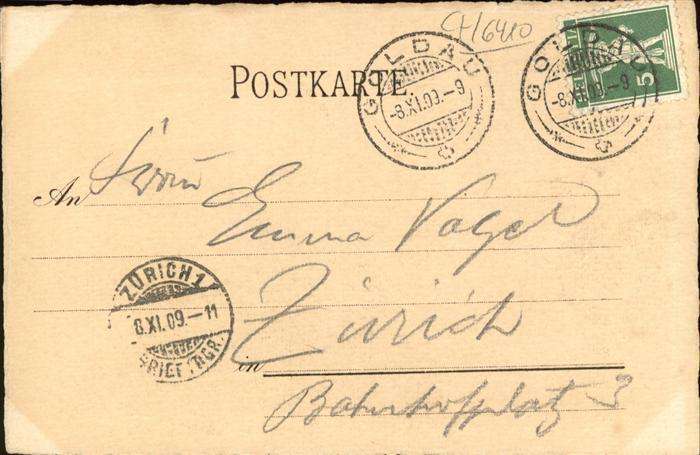 CH/6410
HELVETIA
5
GOLDAU
-8.XI.09.-9
GOLDAU
-8.XI.09.-9
POSTKARTE.
An Frau
Emma Vogel
ZÜRICH 1
8.XI.09.-11
BRIEFTRGR.
in Zürich
Bahnhofplatz 3